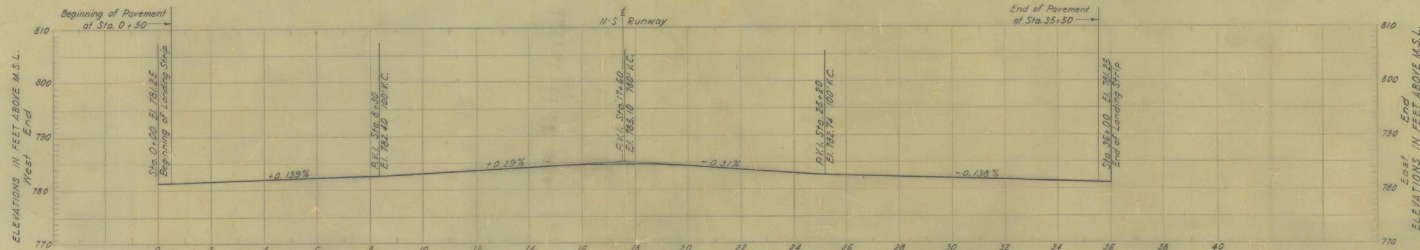 Beginning of Pavement
at Sta. 0+50
℄
N-S Runway
End of Pavement
at Sta. 35+50
ELEVATIONS IN FEET ABOVE M.S.L.
West End
810
800
790
780
770
Sta. 0+00 El. 781.25
Beginning of Landing Strip
+0.139%
P.V.I. Sta. 8+30
El. 782.40 100' V.C.
+0.29%
P.V.I. Sta. 17+60
El. 785.10 780' V.C.
-0.31%
P.V.I. Sta. 25+20
El. 782.74 100' V.C.
-0.138%
Sta. 36+00 El. 781.25
End of Landing Strip
810
800
790
780
770
East End
ELEVATIONS IN FEET ABOVE M.S.L.
0 2 4 6 8 10 12 14 16 18 20 22 24 26 28 30 32 34 36 38 40